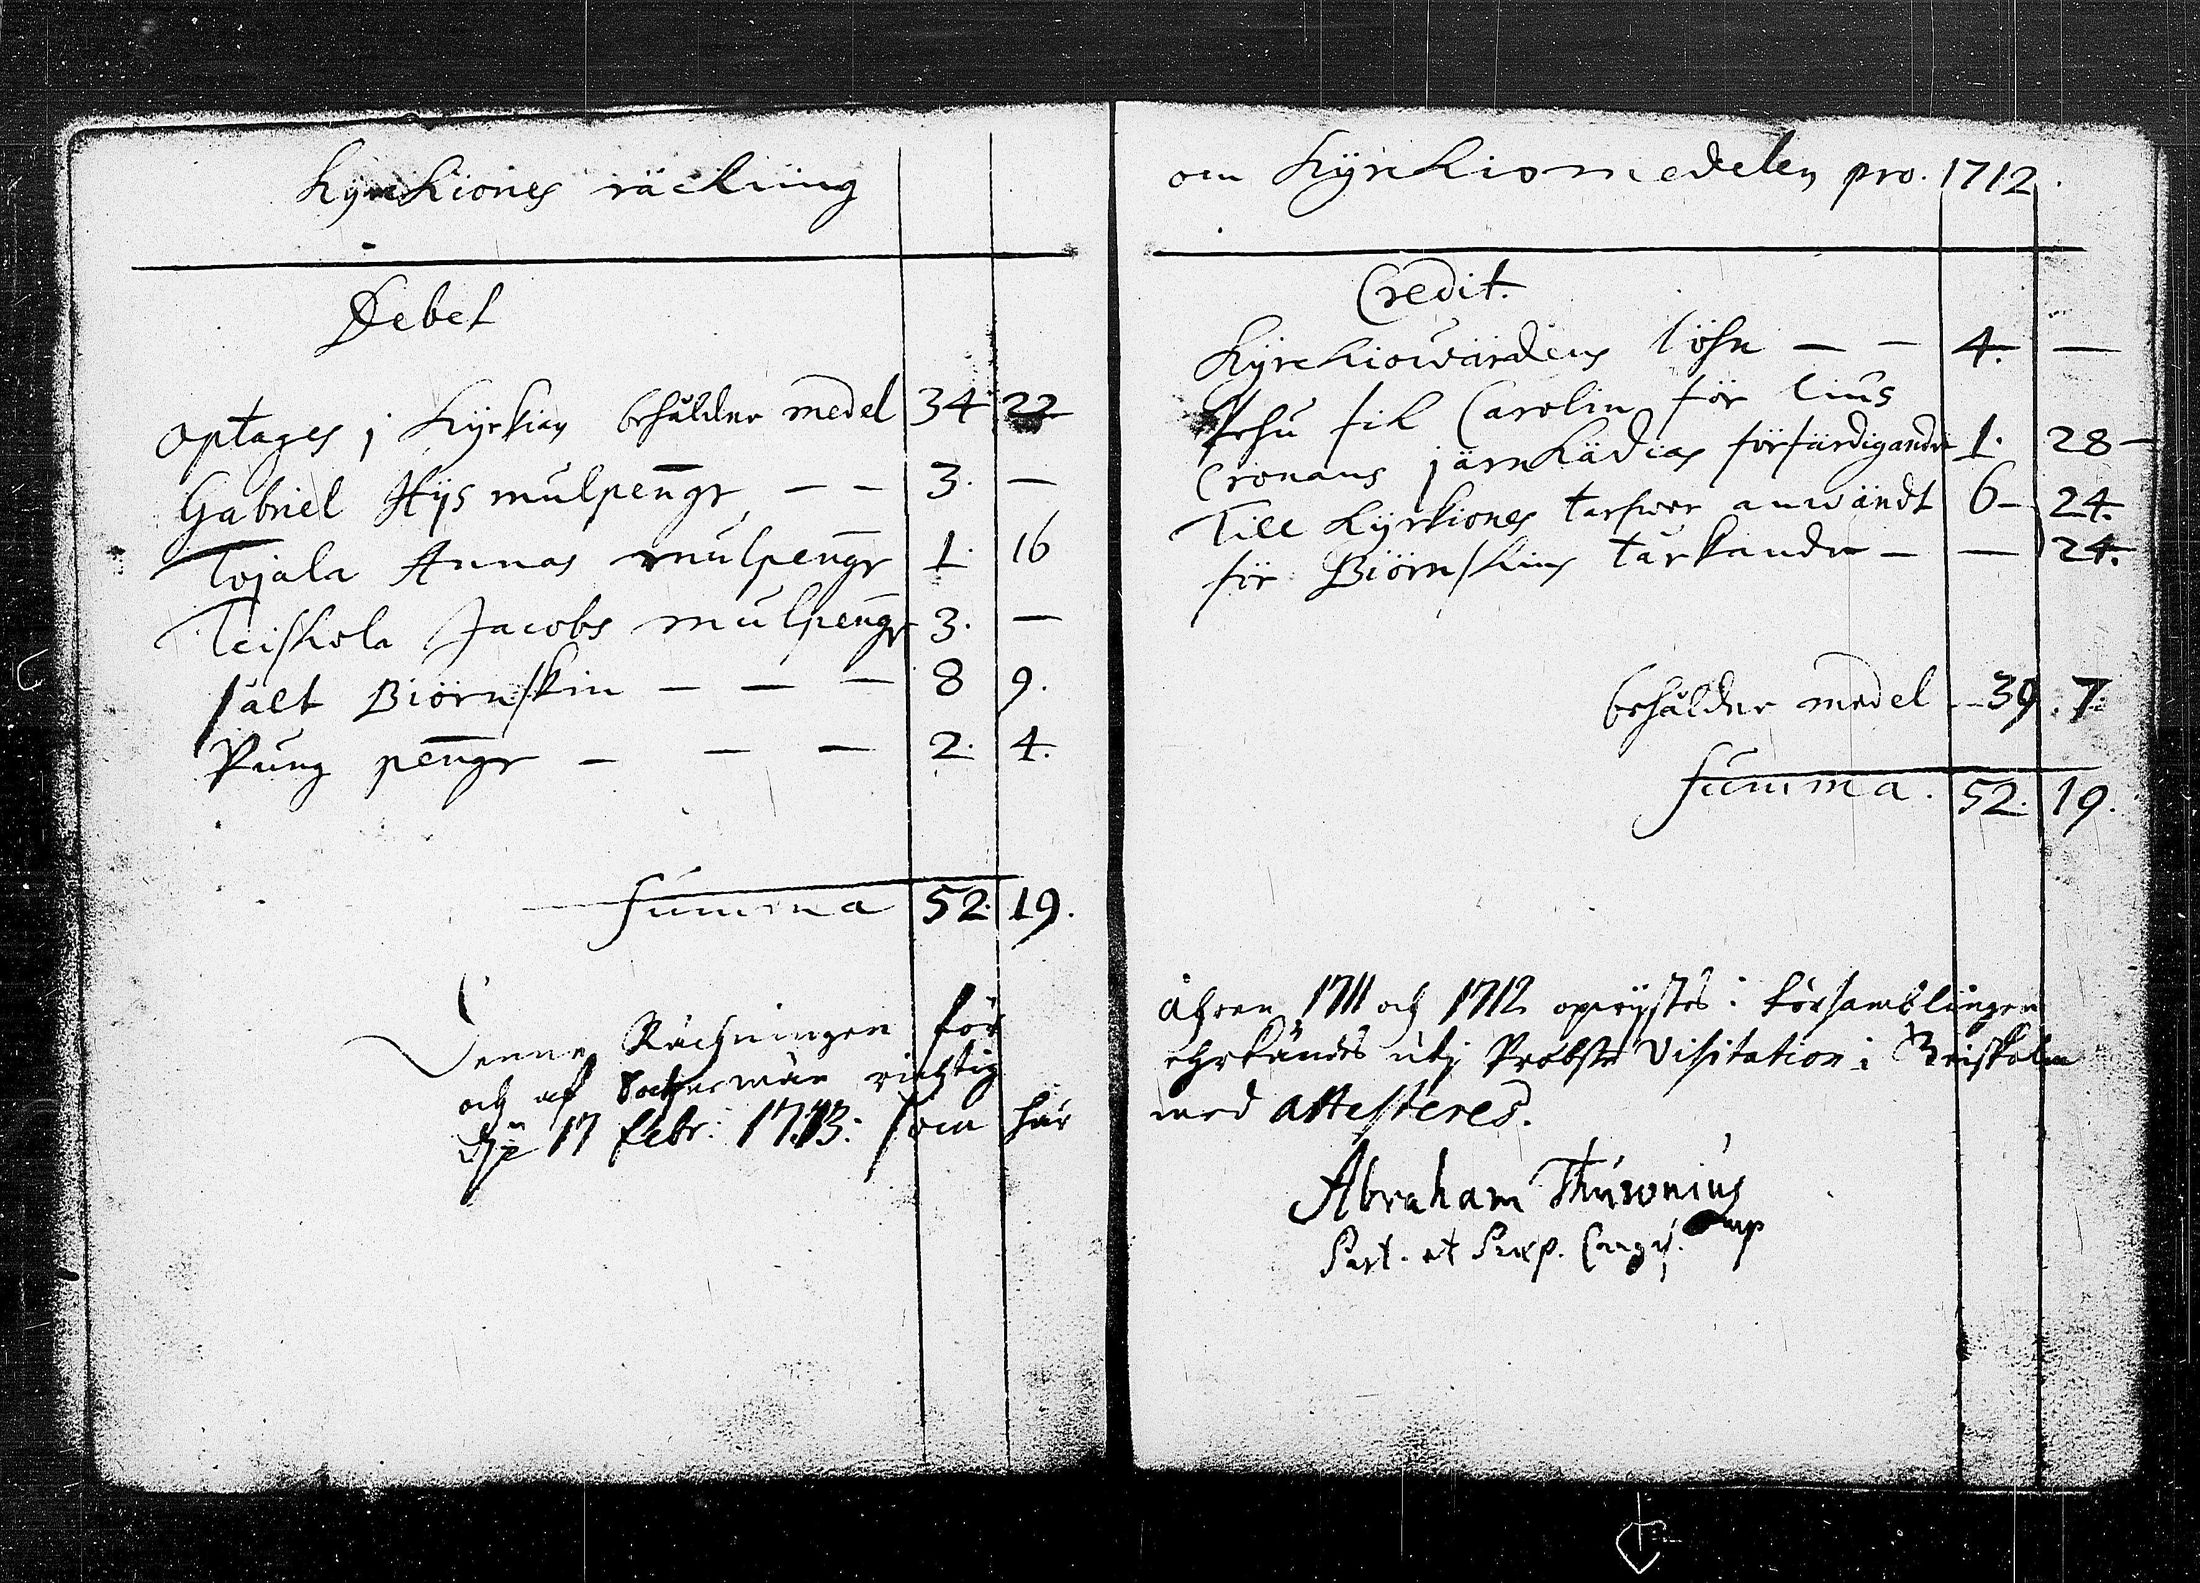 Kyrckiones räckning
Debet
optages j Kyrkian behåldne medel 34 22
Gabriel Hÿs mulpengr — — 3. —
Tojala Annas mulpengr 1. 16
Teiskola Jacobs mulpengr 3. —
sält Biörnskin — — — 8 9.
Pung pengr — — — 2. 4.
Summa 52. 19.
Denne Räckningen för
och af Sochnemän richtig
17 febr: 1713: som här
om Kÿrckiomedelen pro. 1712.
Credit.
Kÿrckiowärdens löhn — — 4. —
fik Carolin för lius
Cronans järnkädias förfärdigande 1. 28 —
Till Kyrkiones tarfwer anwändt 6 — 24.
för Biörnskins tårkande — — 24.
behåldne medel — 39. 7.
Summa. 52. 19.
åhren 1711 och 1712 oplystes i församblingen
ehrkändes utj Probste Visitation i
med attesteres.
Abraham Thuronius
Past. et Præp. mp